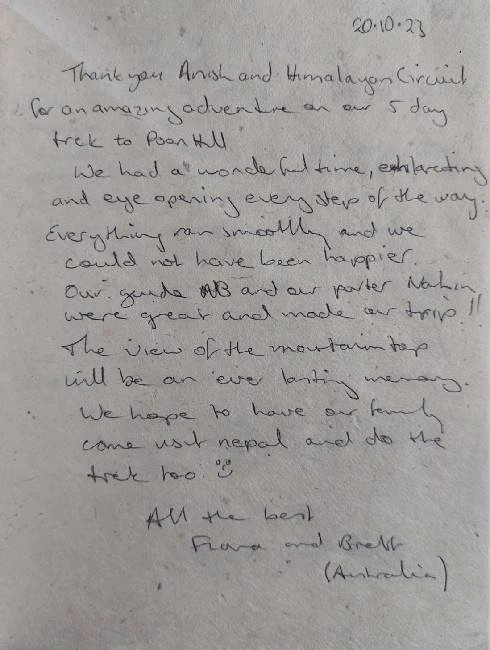 20.10.23
Thank you Anish and Himalayan Circuit
for an amazing adventure on our 5 day
trek to Poon Hill
We had a wonderful time, exhilarating
and eye opening every step of the way.
Everything ran smoothly and we
could not have been happier.
Our guide AB and our porter
were great and made our trip!!
The view of the mountain top
will be an ever lasting memory.
We hope to have our family
come visit nepal and do the
trek too ☺
All the best
Fiona and Brett
(Australia)